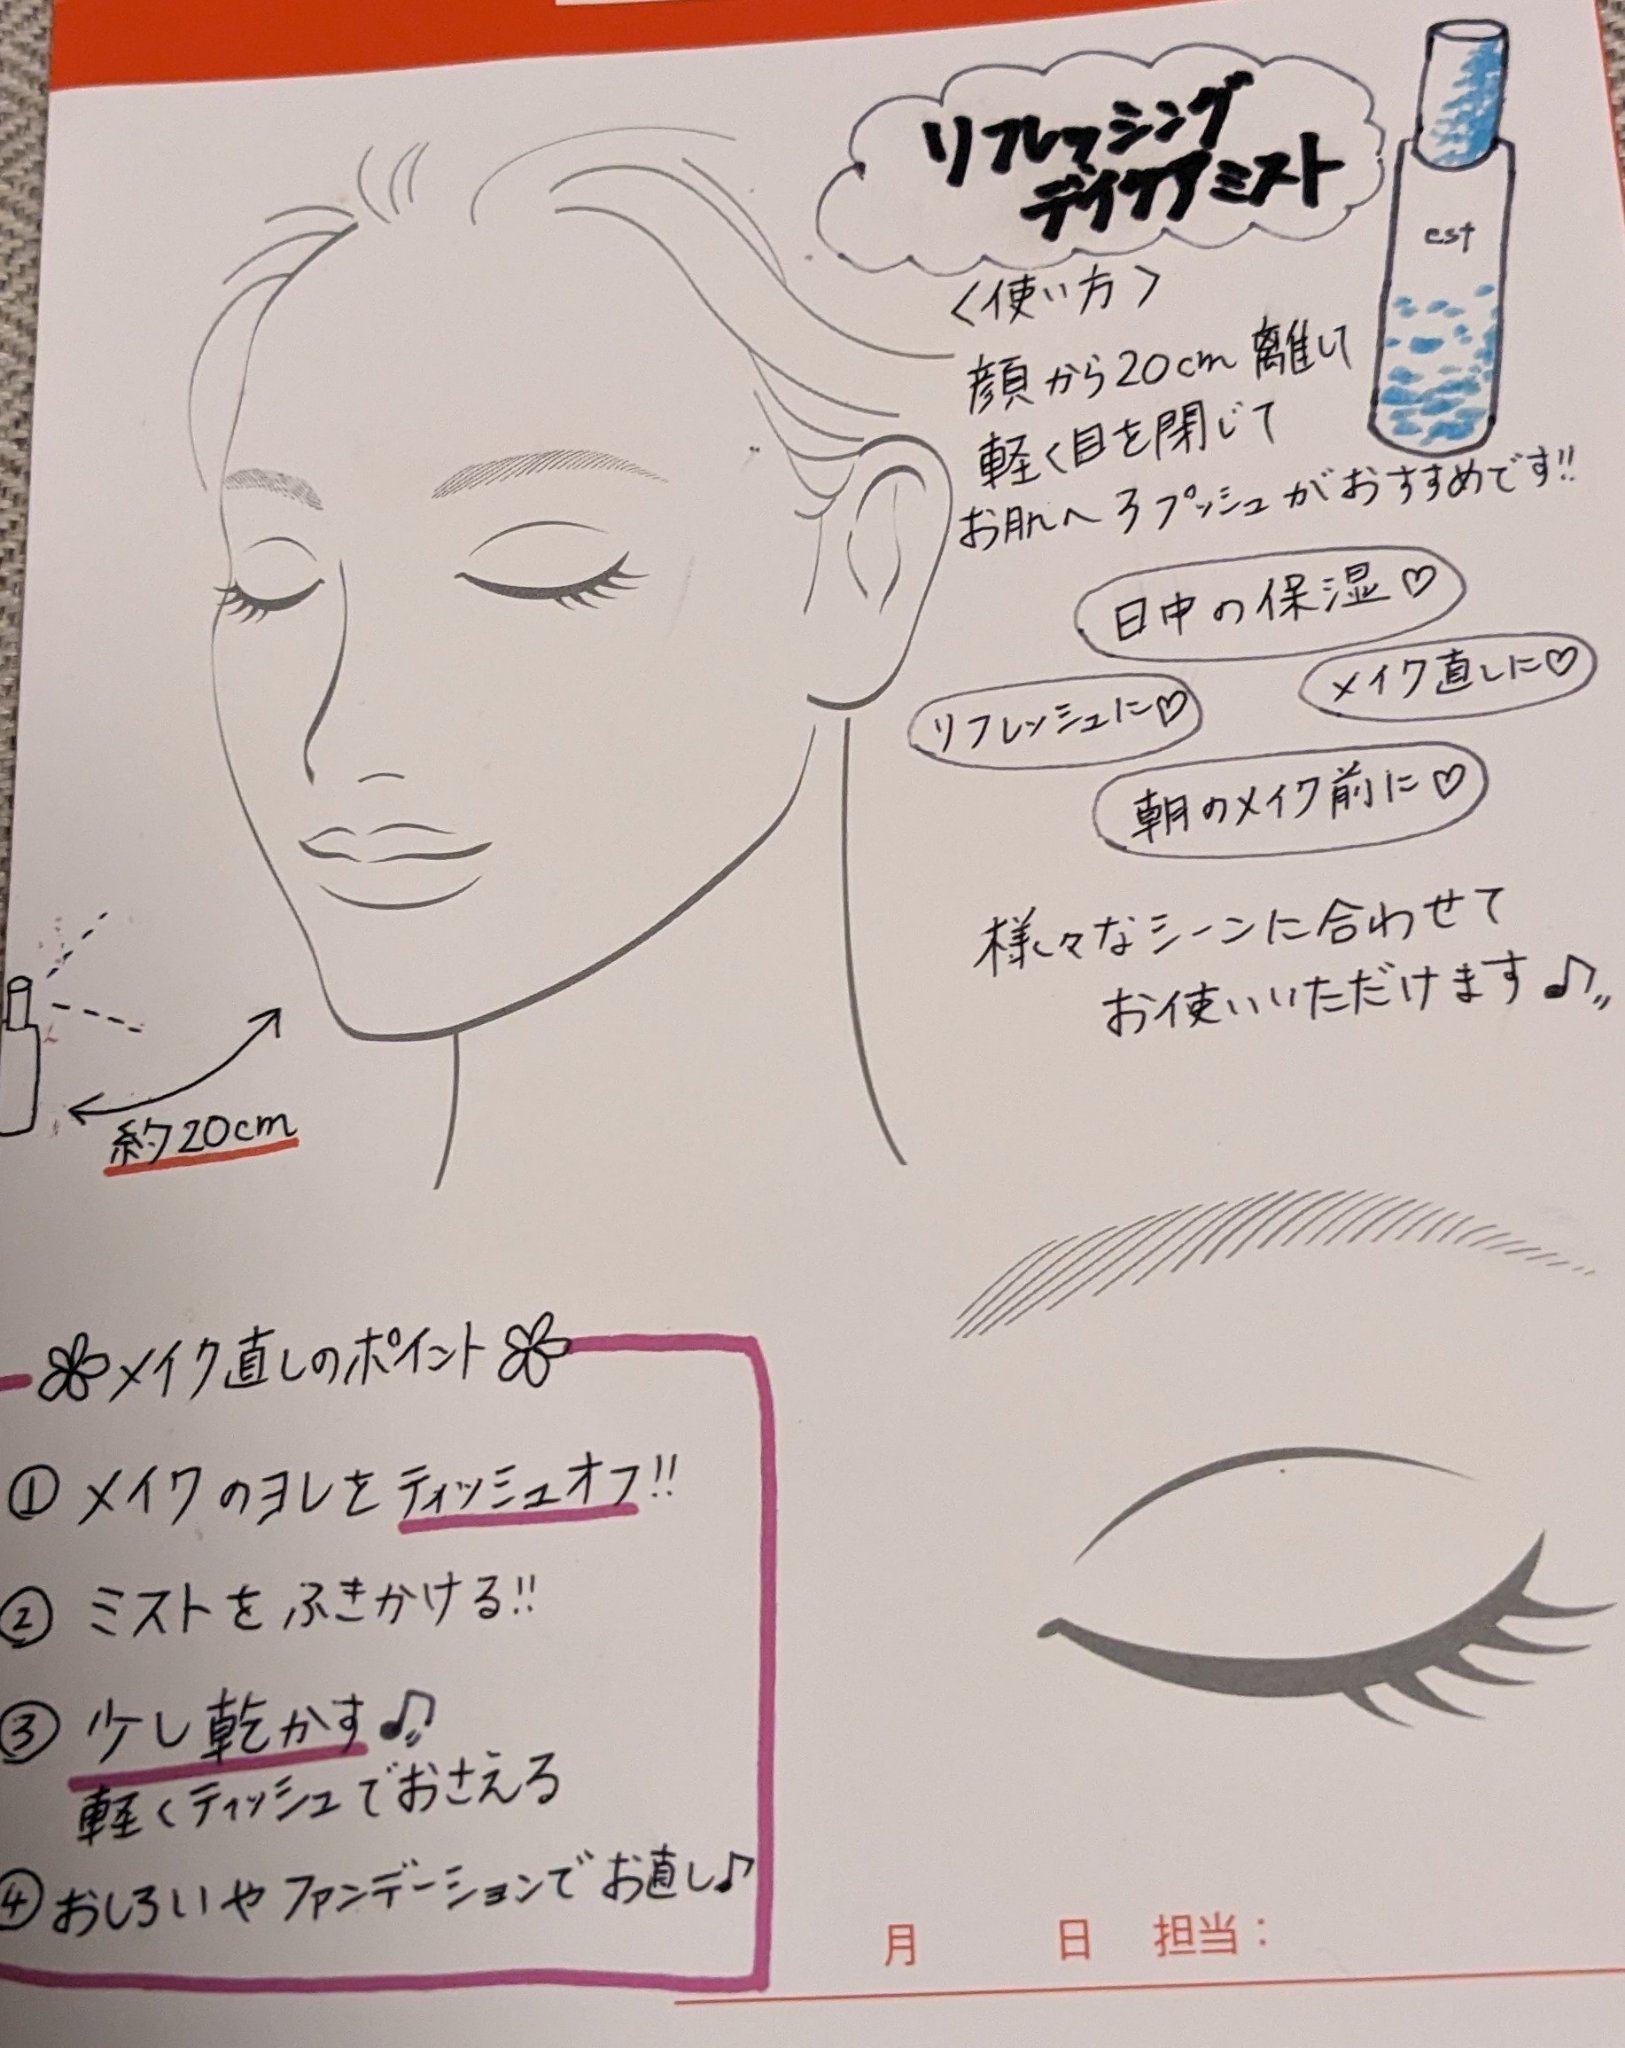 リフレッシング
デイケアミスト
est
〈使い方〉
顔から20cm離して
軽く目を閉じて
お肌へ3プッシュがおすすめです!!
日中の保湿♡
メイク直しに♡
リフレッシュに♡
朝のメイク前に♡
様々なシーンに合わせて
お使いいただけます♫
約20cm
メイク直しのポイント
① メイクのヨレをティッシュオフ!!
② ミストをふきかける!!
③ 少し乾かす♫
軽くティッシュでおさえる
④ おしろいやファンデーションでお直し♪
月 日 担当: